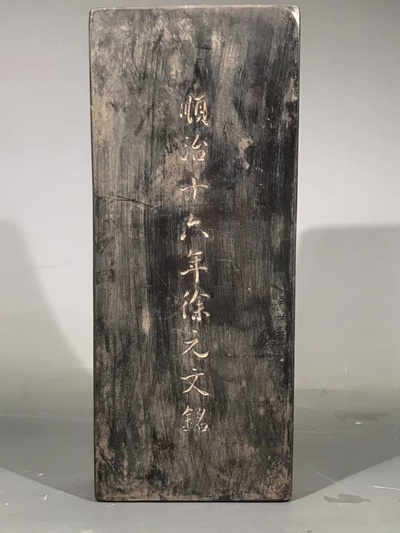 順治十六年徐元文銘